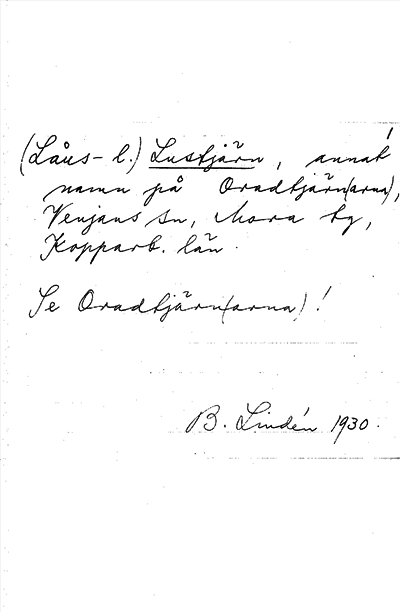 (Låus- l.) Lustjärn, annat
namn på Oradtjärn(arna),
Venjans sn, Mora tg,
Kopparb. län.
Se Oradtjärn(arna)!
B. Lindén 1930.